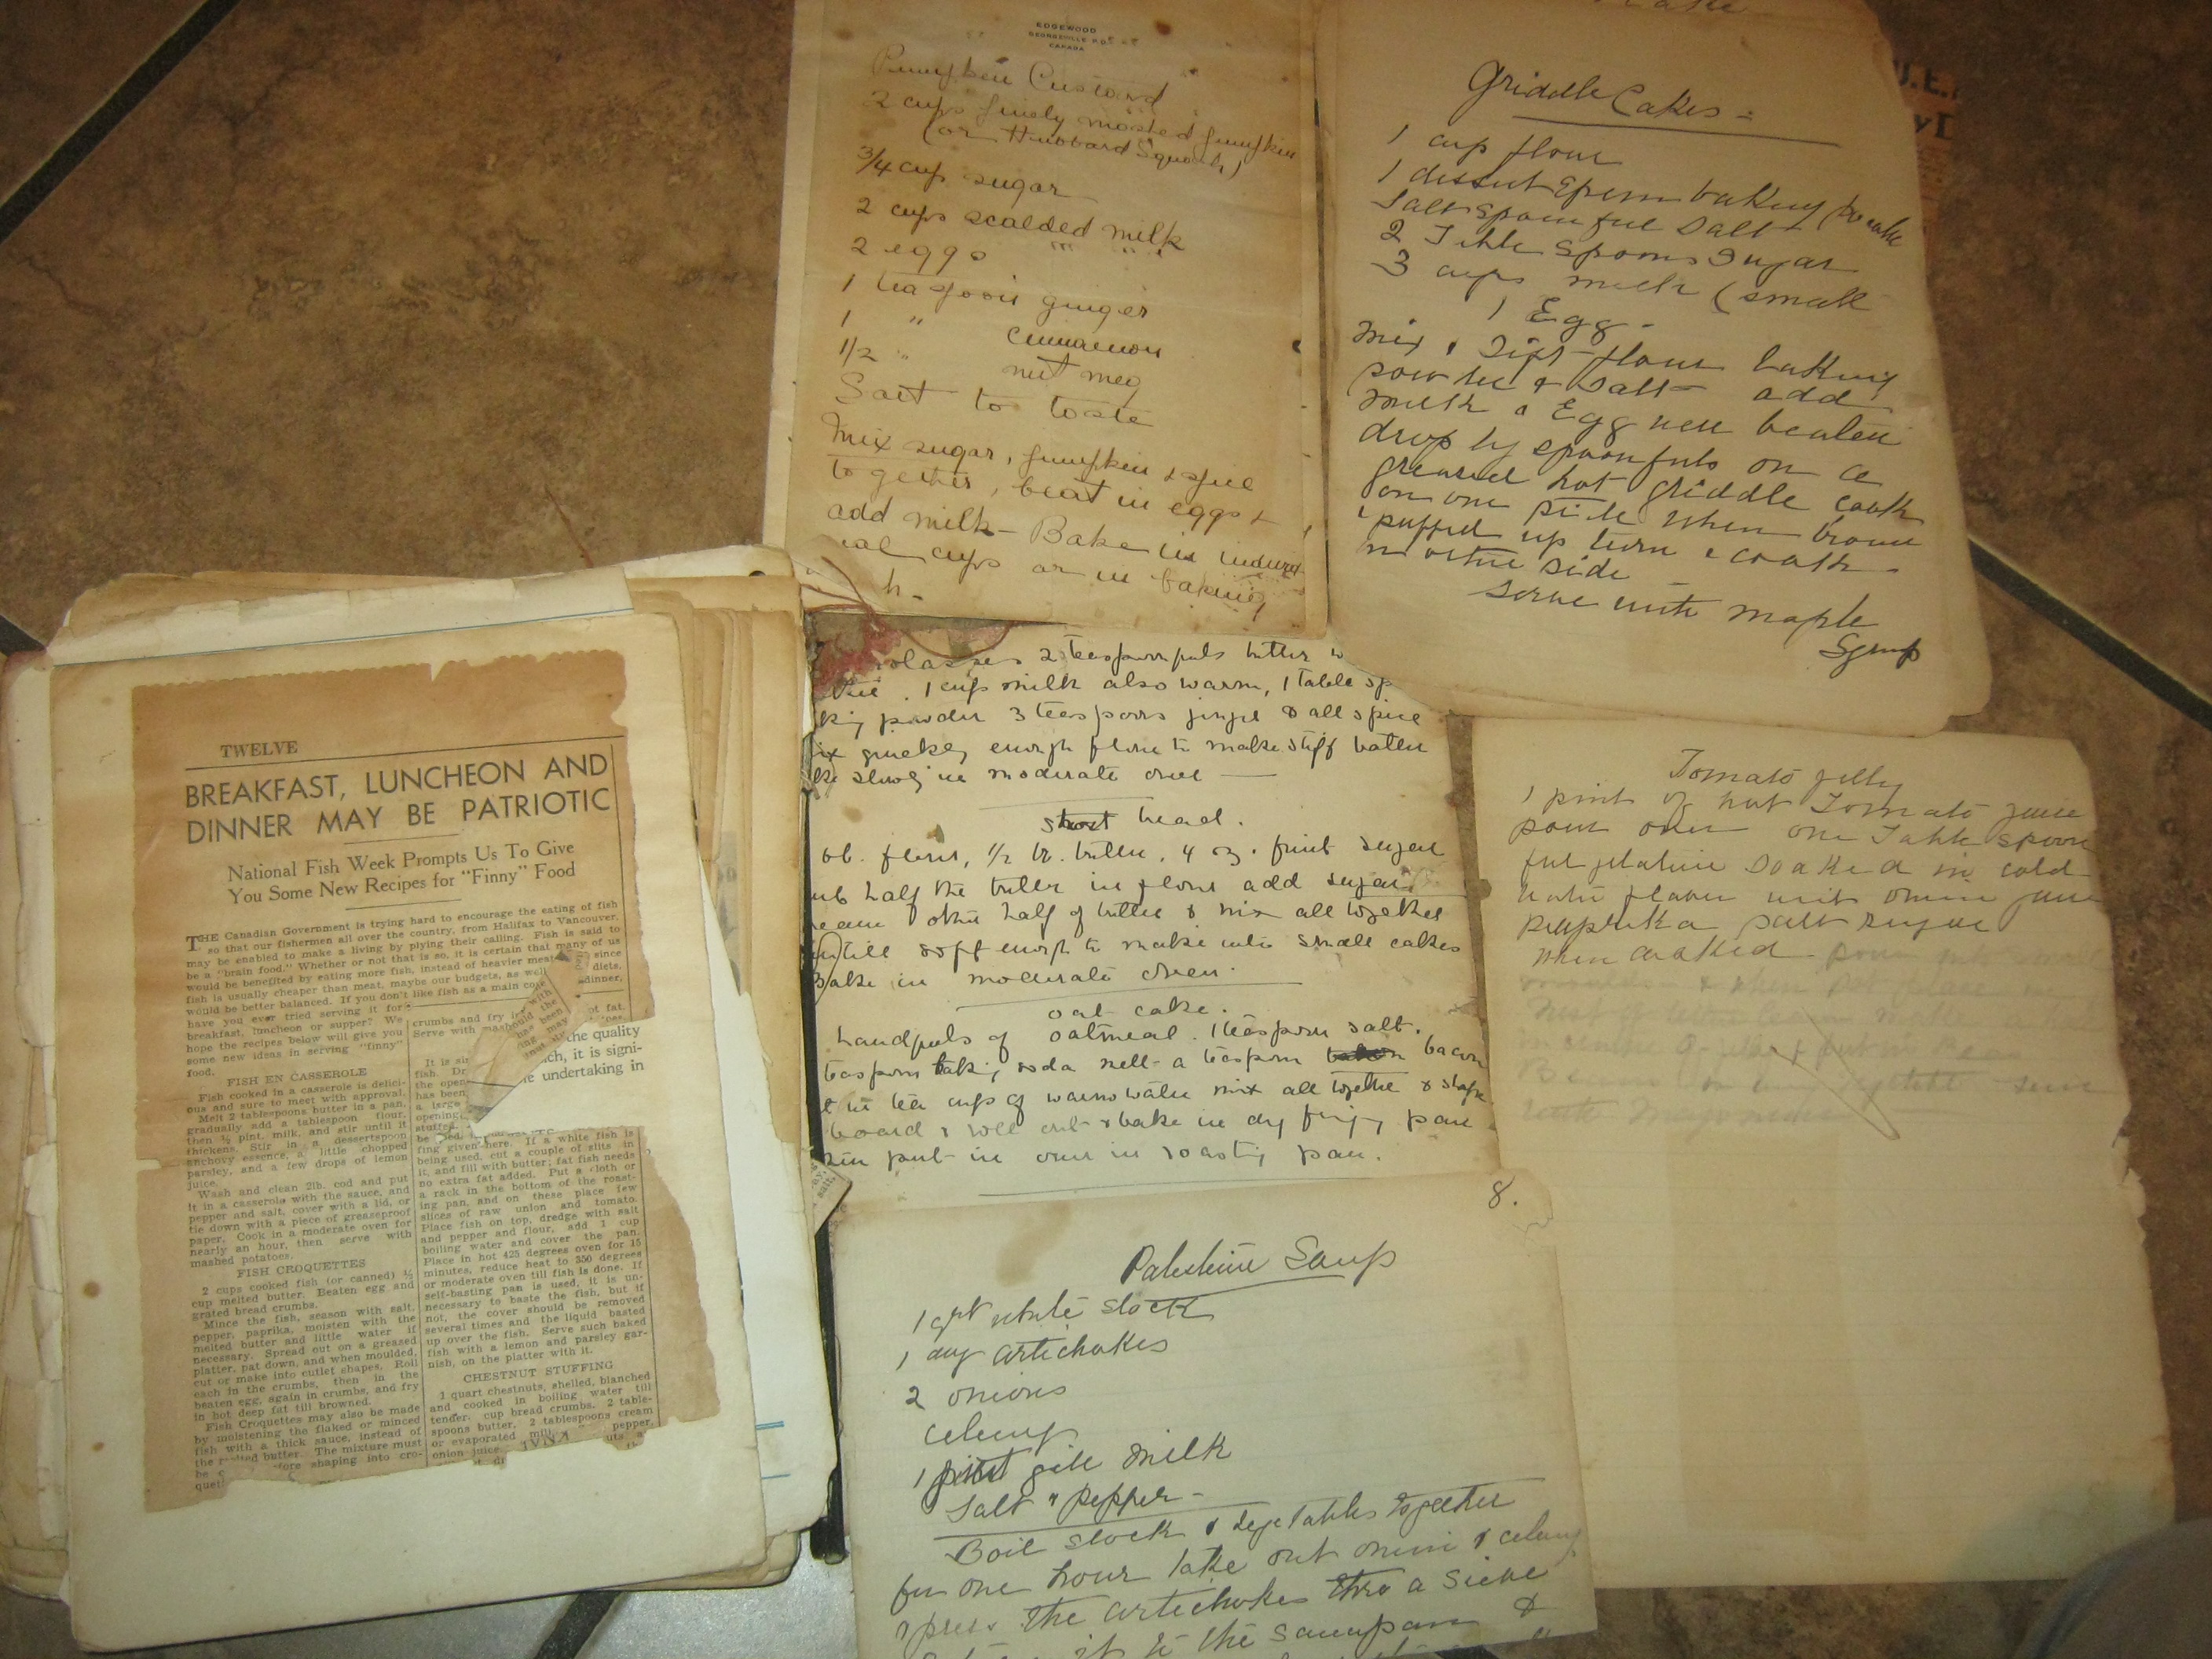 EDGEWOOD
GEORGEVILLE P.Q.
CANADA
Pumpkin Custard
2 cups finely mashed pumpkin
(or Hubbard Squash)
3/4 cup sugar
2 cups scalded milk
2 eggs
1 teaspoon ginger
1 " cinnamon
1/2 " nut meg
Salt to taste
Mix sugar, pumpkin & spice
together, beat in eggs &
add milk - Bake in individ
ual cups or in baking
h.
Griddle Cakes -
1 cup flour
1 dessert spoon baking powder
Salt spoonful Salt
2 Table Spoons Sugar
3 cups milk (small
1 Egg -
Mix & Sift flour baking
powder & Salt add
milk & Egg well beaten
drop by spoonfuls on a
greased hot griddle cook
on one side when brown
& puffed up turn & cook
on other side
Serve with maple
Syrup
olasses 2 teaspoonfuls butter
1 cup milk also warm, 1 table sp
king powder 3 teaspoons ginger & all spice
ix quickly enough flour to make stiff batter
ke slowly in moderate oven
short bread.
lb. flour, 1/2 lb. butter, 4 oz. fruit sugar
rub half the butter in flour add sugar
cream other half of butter & mix all together
untill soft enough to make into small cakes
Bake in moderate oven.
oat cake.
handfuls of oatmeal. 1 teaspoon salt.
teaspoon baking soda melt a teaspoon bacon
in tea cup of warm water mix all together & shape
board & roll out & bake in dry frying pan
then put in oven in roasting pan.
Tomato Jelly
1 pint of hot Tomato juice
pour over one Table spoon
ful gelatine soaked in cold
water flavor with onion juice
paprika salt sugar
when cooked pour
8.
Palestine Soup
1 qrt white stock
1 doz artichokes
2 onions
celery
1 pint gill milk
Salt & pepper -
Boil stock & vegetables together
for one hour take out onion & celery
& press the artichokes thro a Sieve
it to the saucepan &
TWELVE
BREAKFAST, LUNCHEON AND
DINNER MAY BE PATRIOTIC
National Fish Week Prompts Us To Give
You Some New Recipes for "Finny" Food
THE Canadian Government is trying hard to encourage the eating of fish
so that our fishermen all over the country, from Halifax to Vancouver,
may be enabled to make a living by plying their calling. Fish is said to
be a "brain food." Whether or not that is so, it is certain that many of us
would be benefited by eating more fish, instead of heavier meat since
fish is usually cheaper than meat, maybe our budgets, as well diets,
would be better balanced. If you don't like fish as a main dinner,
have you ever tried serving it for
breakfast, luncheon or supper? We
hope the recipes below will give you
some new ideas in serving "finny"
food.
FISH EN CASSEROLE
Fish cooked in a casserole is delici-
ous and sure to meet with approval.
Melt 2 tablespoons butter in a pan,
gradually add a tablespoon flour,
then ½ pint, milk, and stir until it
thickens. Stir in a dessertspoon
anchovy essence, a little chopped
parsley, and a few drops of lemon
juice.
Wash and clean 2lb. cod and put
it in a casserole with the sauce, and
pepper and salt, cover with a lid, or
tie down with a piece of greaseproof
paper. Cook in a moderate oven for
nearly an hour, then serve with
mashed potatoes.
FISH CROQUETTES
2 cups cooked fish (or canned) ½
cup melted butter. Beaten egg and
grated bread crumbs.
Mince the fish, season with salt,
pepper, paprika, moisten with the
melted butter and little water if
necessary. Spread out on a greased
platter, pat down, and when moulded,
cut or make into cutlet shapes. Roll
each in the crumbs, then in the
beaten egg, again in crumbs, and fry
in hot deep fat till browned.
Fish Croquettes may also be made
by moistening the flaked or minced
fish with a thick sauce, instead of
the melted butter. The mixture must
be before shaping into cro-
quet
crumbs and fry in hot fat.
Serve with
the quality
ch, it is signi-
undertaking in
It is
fish.
the open
has been
a large
opening
stuffed
fing given here. If a white fish is
being used, cut a couple of slits in
it, and fill with butter; fat fish needs
no extra fat added. Put a cloth or
a rack in the bottom of the roast-
ing pan, and on these place few
slices of raw onion and tomato.
Place fish on top, dredge with salt
and pepper and flour, add 1 cup
boiling water and cover the pan.
Place in hot 425 degrees oven for 15
minutes, reduce heat to 350 degrees
or moderate oven till fish is done. If
self-basting pan is used, it is un-
necessary to baste the fish, but if
not, the cover should be removed
several times and the liquid basted
up over the fish. Serve such baked
fish with a lemon and parsley gar-
nish, on the platter with it.
CHESTNUT STUFFING
1 quart chestnuts, shelled, blanched
and cooked in boiling water till
tender. cup bread crumbs. 2 table-
spoons butter, 2 tablespoons cream
or evaporated milk, pepper,
onion juice.